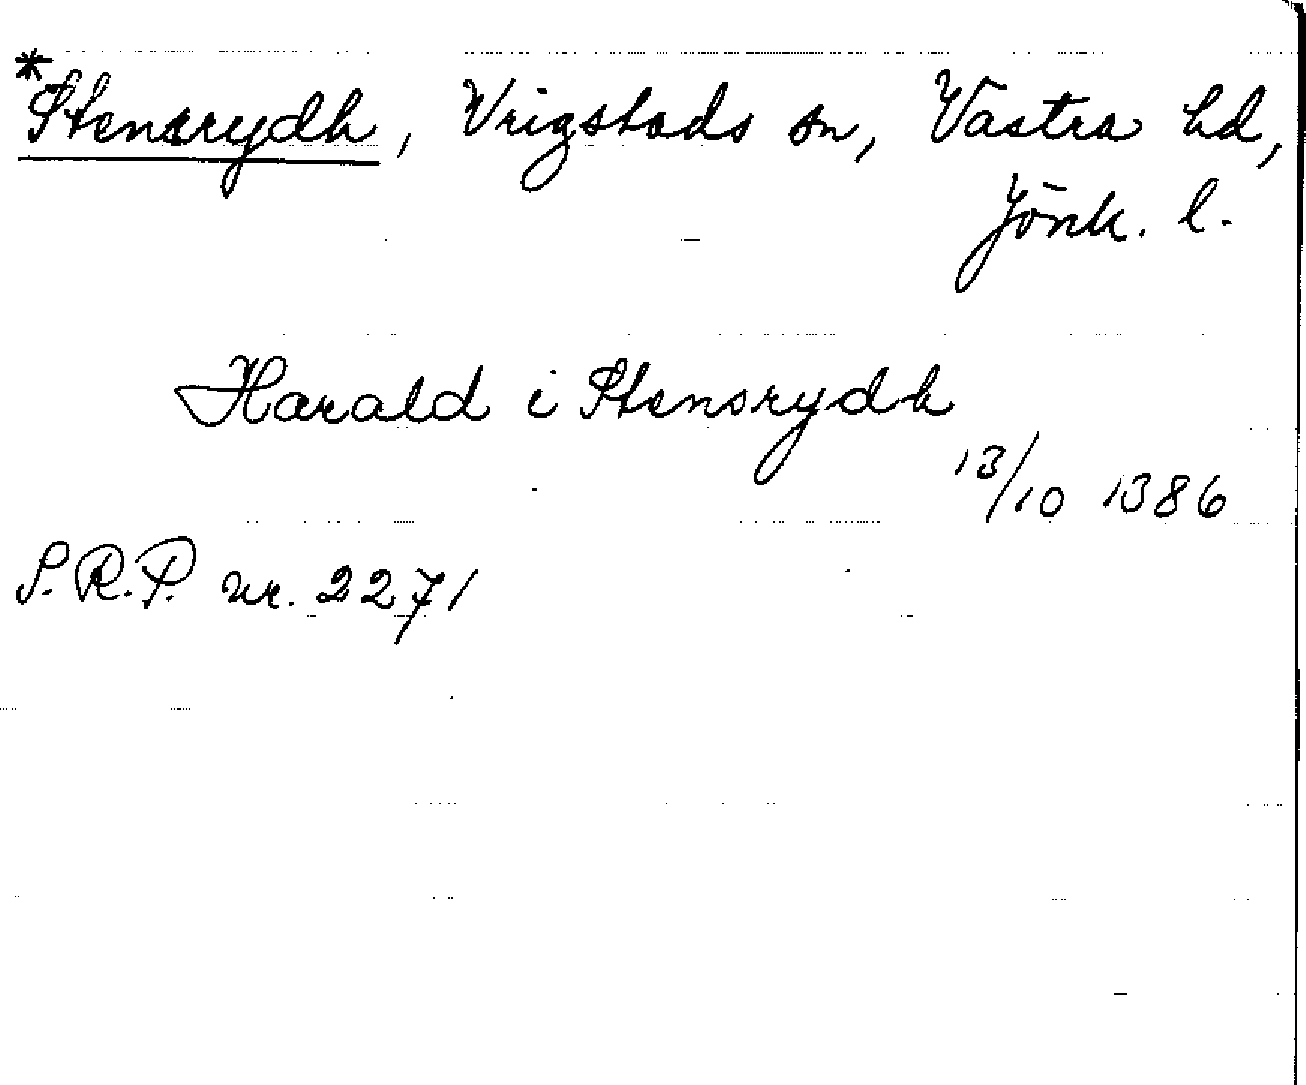 *Stensrydh, Vrigstads sn, Västra hd,
Jönk. l.
Harald i Stensrydh
13/10 1386
S.R.P. nr. 2271